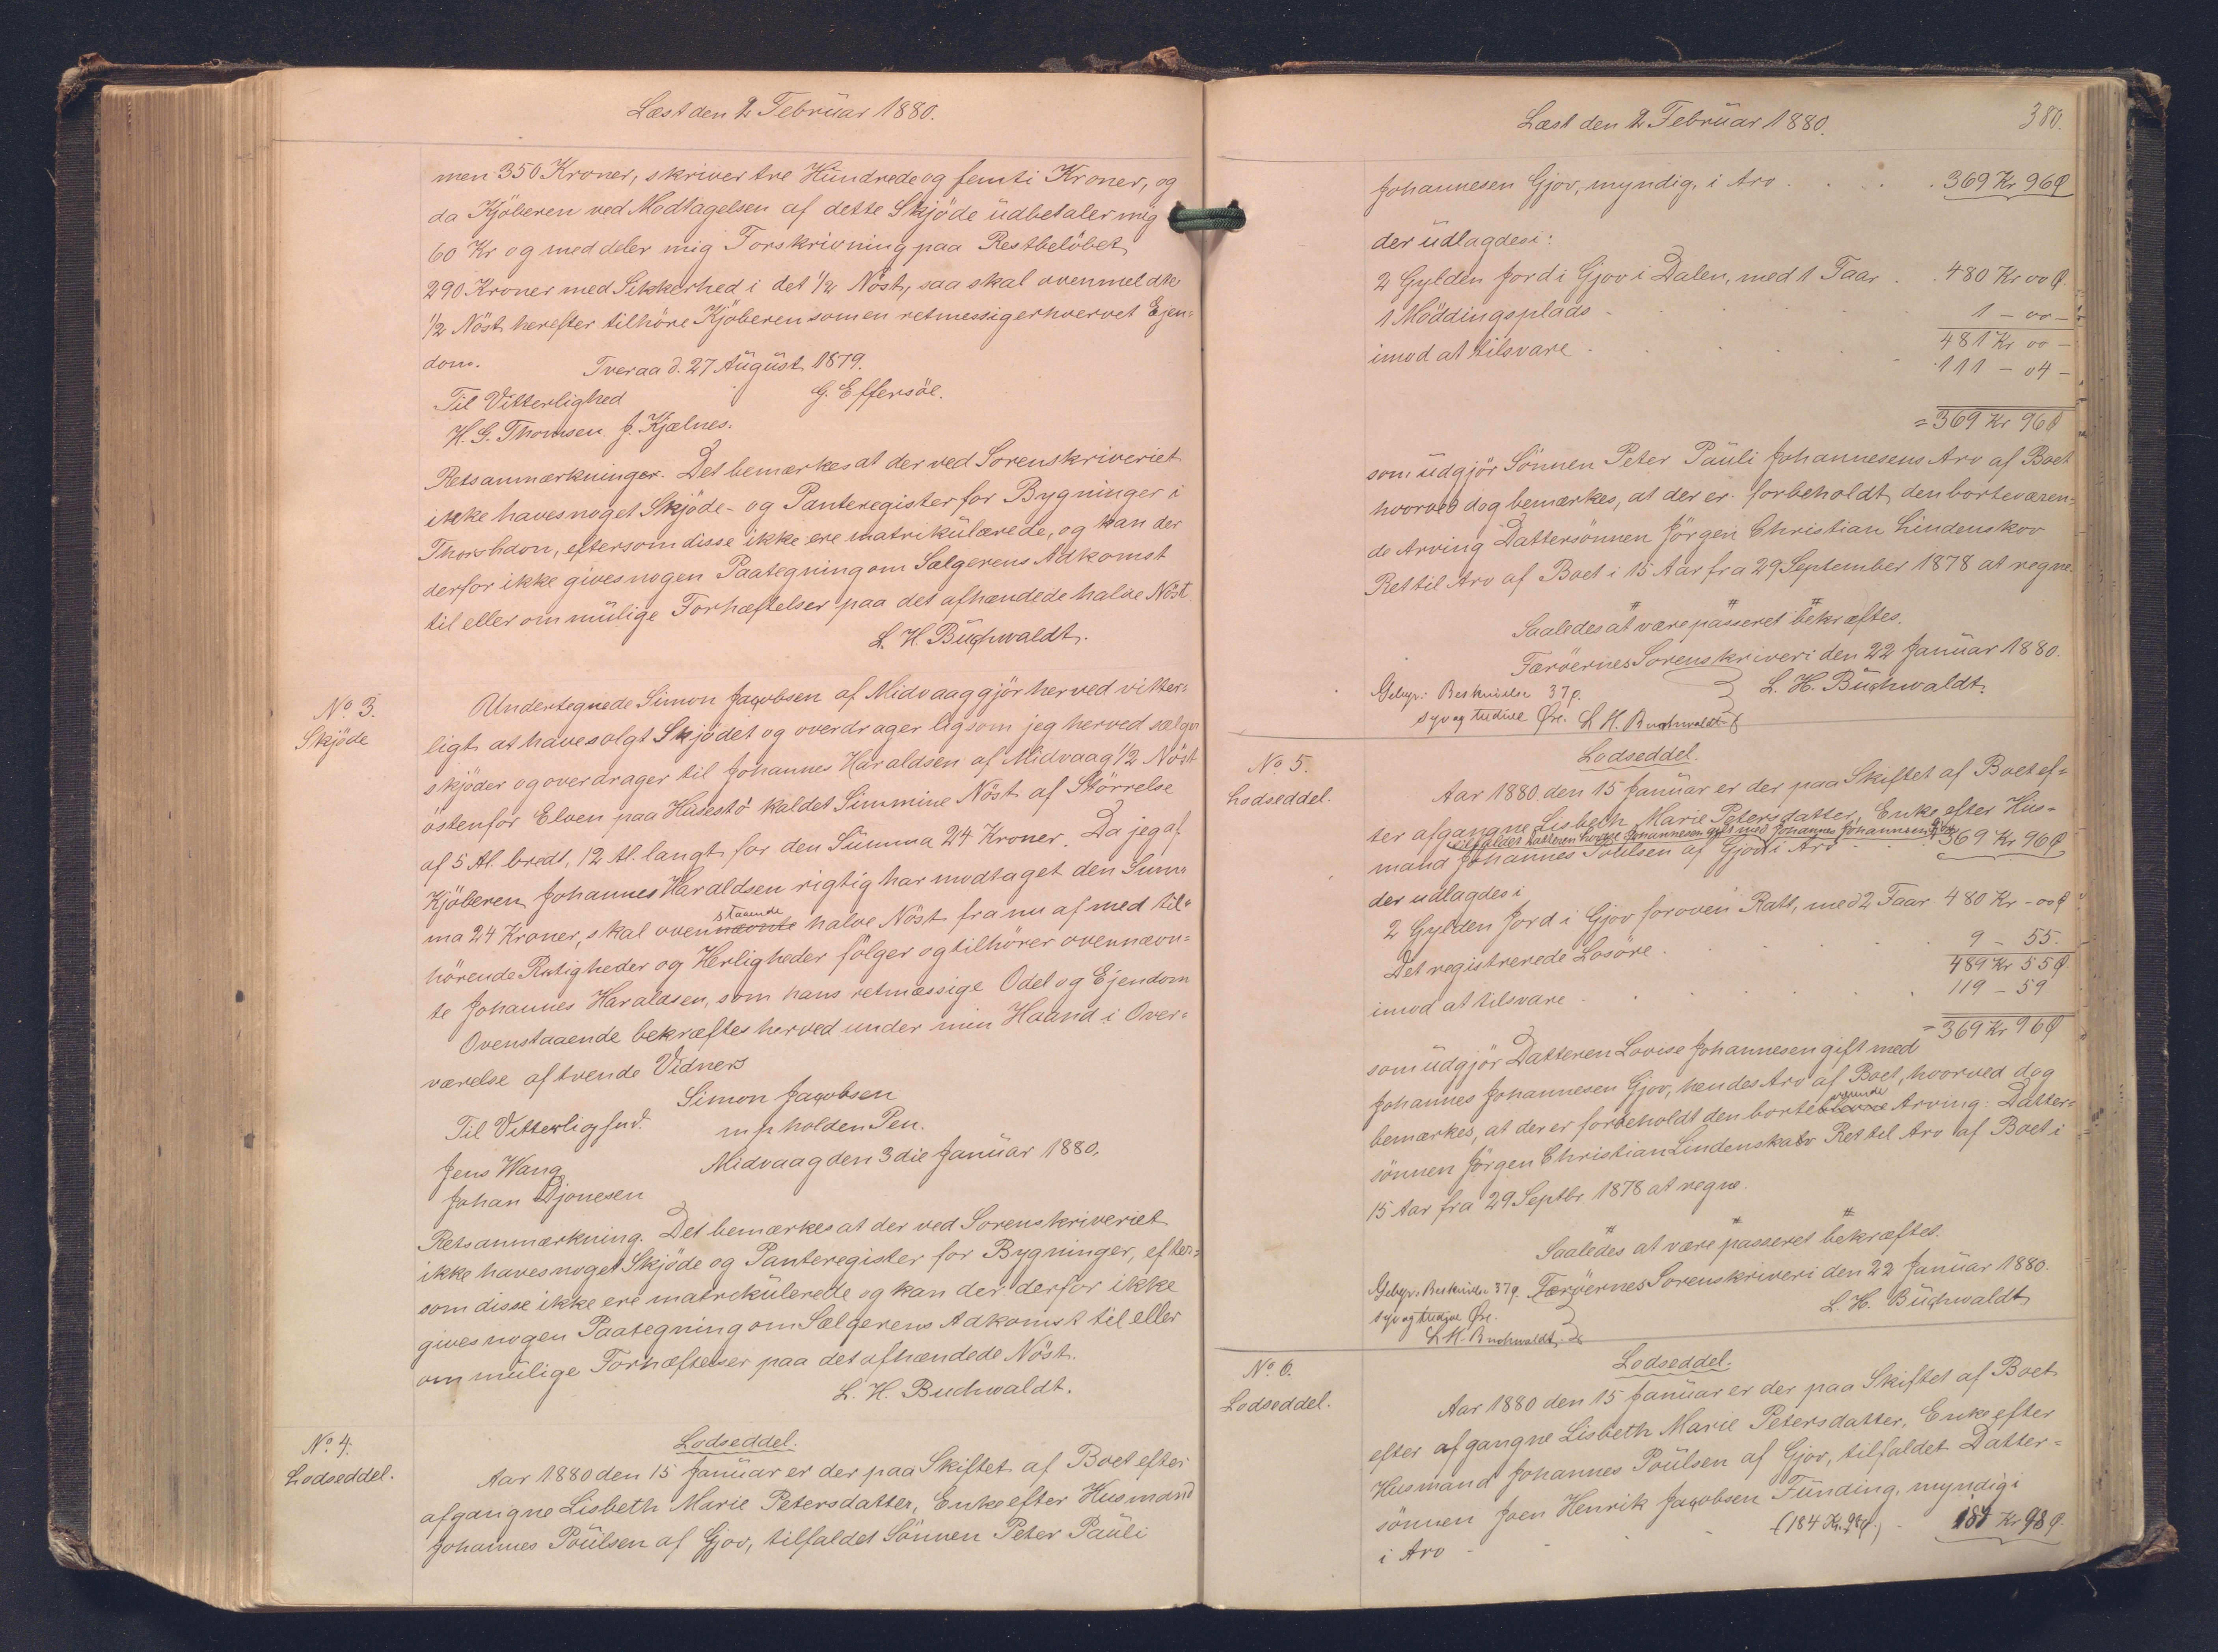 Læst den 2 Februar 1880.
men 350 Kroner, skriver tre Hundrede og femti Kroner, og
da Kjöberen ved Modtagelsen af dette Skjöde udbetaler mig
60 Kr og meddeler mig Forskrivning paa Restbelöbet
290 Kroner med Sikkerhed i det 1/2 Nöst, saa skal ovenmeldte
1/2 Nöst herefter tilhöre Kjöberen som en retmessig erhvervet Ejen=
dom.
Tveraa d. 27 August 1879.
Til Vitterlighed
G. Effersöe.
H. G. Thomsen. J. Kjælnes.
Retsanmærkninger. Det bemærkes at der ved Sorenskriveriet
ikke haves noget Skjöde- og Panteregister for Bygninger i
Thorshavn, eftersom disse ikke ere matrikulærede, og kan der
derfor ikke gives nogen Paategning om Sælgerens Adkomst
til eller om mulige Forhæftelser paa det afhændede halve Nöst.
L. H. Buchwaldt.
No 3.
Skjöde
Undertegnede Simon Jacobsen af Midvaag gjör herved vitter=
ligt at have solgt Skjödet og overdrager ligsom jeg herved sælger
skjöder og overdrager til Johannes Haraldsen af Midvaag 1/2 Nöst
östenfor Elven paa Husestö kaldet Simmine Nöst af Störrelse
af 5 Al. bredt, 12 Al. langt for den Summa 24 Kroner. Da jeg af
Kjöberen Johannes Haraldsen rigtig har modtaget den Sum=
ma 24 Kroner, skal ovennævnte staaende halve Nöst fra nu af med til=
hörende Retigheder og Herligheder fölger og tilhörer ovennævn=
te Johannes Haraldsen, som hans retmæssige Odel og Ejendom
Ovenstaaende bekræftes herved under min Haand i Over=
værelse af tvende Vidners
Simon Jacobsen
Til Vitterligfed.
m. p. holden Pen.
Jens Wang
Midvaag den 3die Januar 1880.
Johan Djonesen
Retsanmærkning. Det bemærkes at der ved Sorenskriveriet
ikke haves noget Skjöde og Panteregister for Bygninger, efter=
som disse ikke ere matrikulerede og kan der derfor ikke
gives nogen Paategning om Sælgerens Adkomst til eller
om mulige Forhæftelser paa det afhændede Nöst.
L. H. Buchwaldt.
No 4.
Lodseddel.
Lodseddel.
Aar 1880 den 15 Januar er der paa Skiftet af Boet efter
afgangne Lisbeth Marie Petersdatter, Enke efter Husmand
Johannes Poulsen af Gjov, tilfaldet Sönnen Peter Pauli
Læst den 2 Februar 1880.
380.
Johannesen Gjov, myndig, i Arv . . . . 369 Kr 96 Ø
der udlagdes i:
2 Gylden Jord i Gjov i Dalen, med 1 Faar . . 480 Kr 00 Ø.
1 Möddingsplads - 1 - 00 -
481 Kr 00 -
imod at tilsvare - 111 - 04 -
= 369 Kr 96 Ø
som udgjör Sönnen Peter Pauli Johannesens Arv af Boet
hvorved dog bemærkes, at der er forbeholdt den borteværen=
de Arving Dattersönnen Jörgen Christian Lindenskov
Ret til Arv af Boet i 15 Aar fra 29 September 1878 at regne.
Saaledes at være passeret bekræftes.
Færöernes Sorenskriveri den 22 Januar 1880.
L. H. Buchwaldt.
Gebyr: Beskrivelse 37 Ø.
syv og tredive Øre. L H. Buchwaldt
No 5.
Lodseddel.
Lodseddel.
Aar 1880 den 15 Januar er der paa Skiftet af Boet ef=
ter afgangne Lisbeth Marie Petersdatter, Enke efter Hus=
tilfaldet Datteren Lovise Johannesen gift med Johannes Johannesen Gjov
mand Johannes Poulsen af Gjov i Arv - 369 Kr 96 Ø
der udlagdes i
2 Gylden Jord i Gjov foroven Ratt, med 2 Faar 480 Kr - 00 Ø
Det registrerede Lösöre . 9 - 55.
489 Kr 55 Ø.
imod at tilsvare . 119 - 59
= 369 Kr 96 Ø
som udgjör Datteren Lovise Johannesen gift med
Johannes Johannesen Gjov, hendes Arv af Boet, hvorved dog
bemærkes, at der er forbeholdt den borteblevne værende Arving: Datter=
sönnen Jörgen Christian Lindenskov Ret til Arv af Boet i
15 Aar fra 29 Septbr. 1878 at regne.
Saaledes at være passeret bekræftet.
Gebyr: Beskrivelse 37 Ø. Færöernes Sorenskriveri den 22 Januar 1880.
syv og tredive Øre.
L. H. Buchwaldt
L H. Buchwaldt.
No 6.
Lodseddel.
Lodseddel.
Aar 1880 den 15 Januar er der paa Skiftet af Boet
efter afgangne Lisbeth Marie Petersdatter, Enke efter
Husmand Johannes Poulsen af Gjov, tilfaldet Datter=
sönnen Joen Henrik Jacobsen Funding, myndig i
i Arv - - - (184 Kr. 98 Ø.) - 184 Kr 98 Ø.